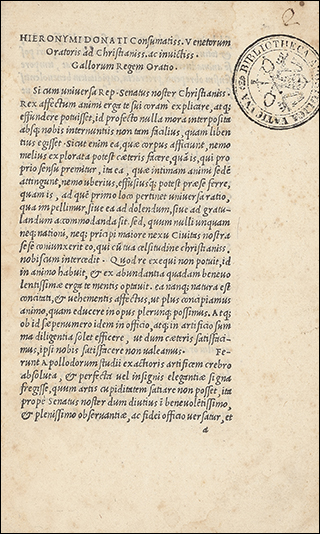 HIERONYMI DONATI Consumatiss. Venetorum
Oratoris ad Christianiss. ac inuictiss.
Gallorum Regem Oratio.
Si cum uniuersa Rep. Senatus noster Christianiss.
Rex affectum animi erga te sui coram explicare, atq;
effundere potuisset, id profecto nulla mora interposita
absq; nobis internuntiis non tam facilius, quam liben
tius egisset. Sicut enim ea, quae corpus afficiunt, nemo
melius explorata potest caeteris facere, quàis, qui pro
prio sensu premitur, ita ea, quae intimam animi sedē
attingunt, nemo uberius, effusiusq; potest prae se ferre,
quam is, ad quē primo loco pertinet uniuersa ratio,
qua impellimur, siue ea ad dolendum, siue ad gratu-
landum accommodanda sit. sed, quum nulli unquam
neq; nationi, neq; principi maiore nexu Ciuitas nostra
se se coniunxerit eo, qui cū tua celsitudine christianiss,
nobiscum intercedit. Quod re exequi non potuit, id
in animo habuit, & ex abundantia quadam beneuo
lentissimae erga te mentis optauit. ea nanq; natura est
concitati, & uehementis affectus, ut plus concipiamus
animo, quam educere in opus plerunq; possimus. Atq;
ob id saepenumero idem in officio, atq; in artificio sum
ma diligentia solet efficere, ut dum caeteris satisfaci-
mus, ipsi nobis satisfacere non ualeamus. Fe-
runt Apollodorum studii exactioris artificem crebro
absoluta, & perfecta uel insignis elegantiae signa
fregisse, quum artis cupiditatem satiare non posset, ita
prope Senatus noster dum diutius ī beneuolētissimo,
& plenissimo obseruantiae, ac fidei officio uersatur, et
a
BIBLIOTHECA
VATICANA